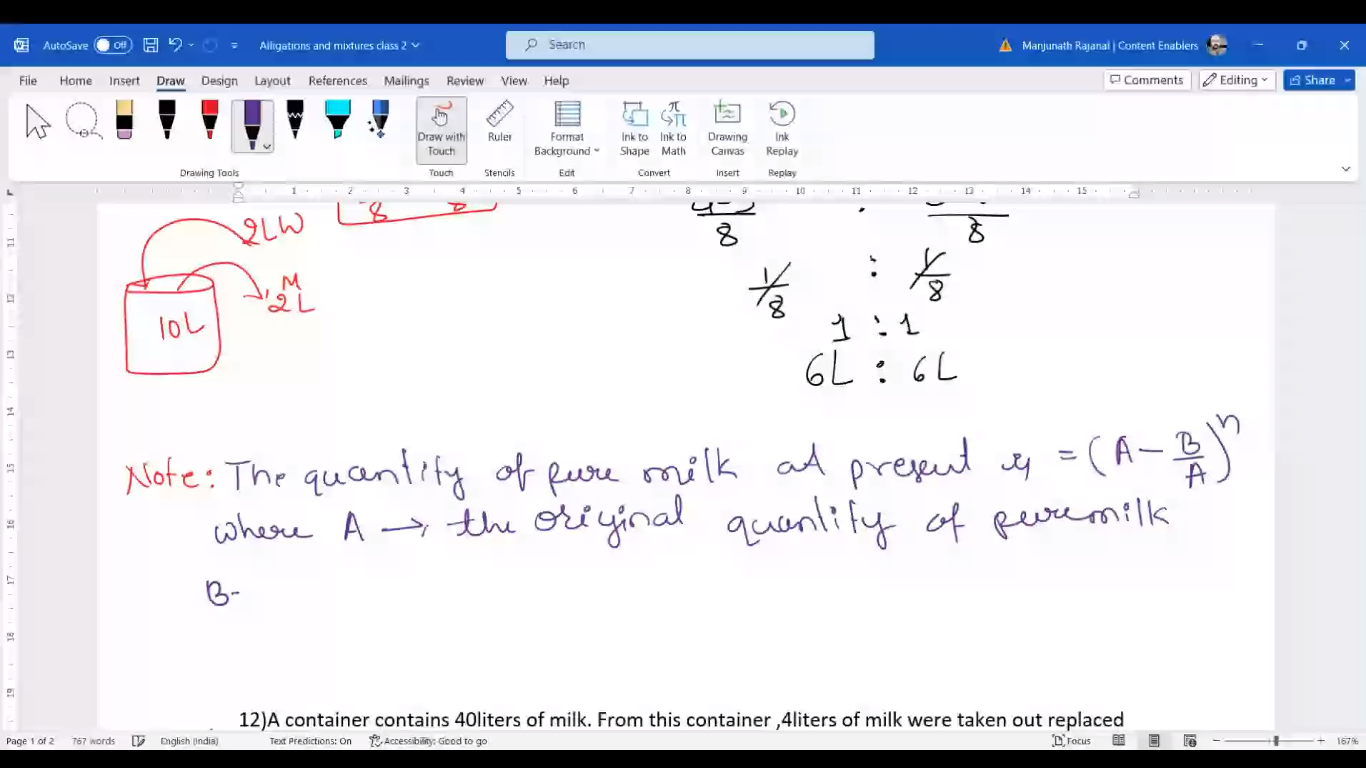 AutoSave Off Alligations and mixtures class 2 Search Manjunath Rajanal | Content Enablers
File Home Insert Draw Design Layout References Mailings Review View Help Comments Editing Share
Draw with Touch Ruler Format Background Ink to Shape Ink to Math Drawing Canvas Ink Replay
Drawing Tools Touch Stencils Edit Convert Insert Replay
1 2 3 4 5 6 7 8 9 10 11 12 13 14 15
8 8
8 : 8
2LW
M
2L
10L
1/8 : 1/8
1 : 1
6L : 6L
Note: The quantity of pure milk at present is = (A - B/A)^n
where A → the original quantity of pure milk
B-
12)A container contains 40liters of milk. From this container ,4liters of milk were taken out replaced
Page 1 of 2 767 words English (India) Text Predictions: On Accessibility: Good to go Focus 167%